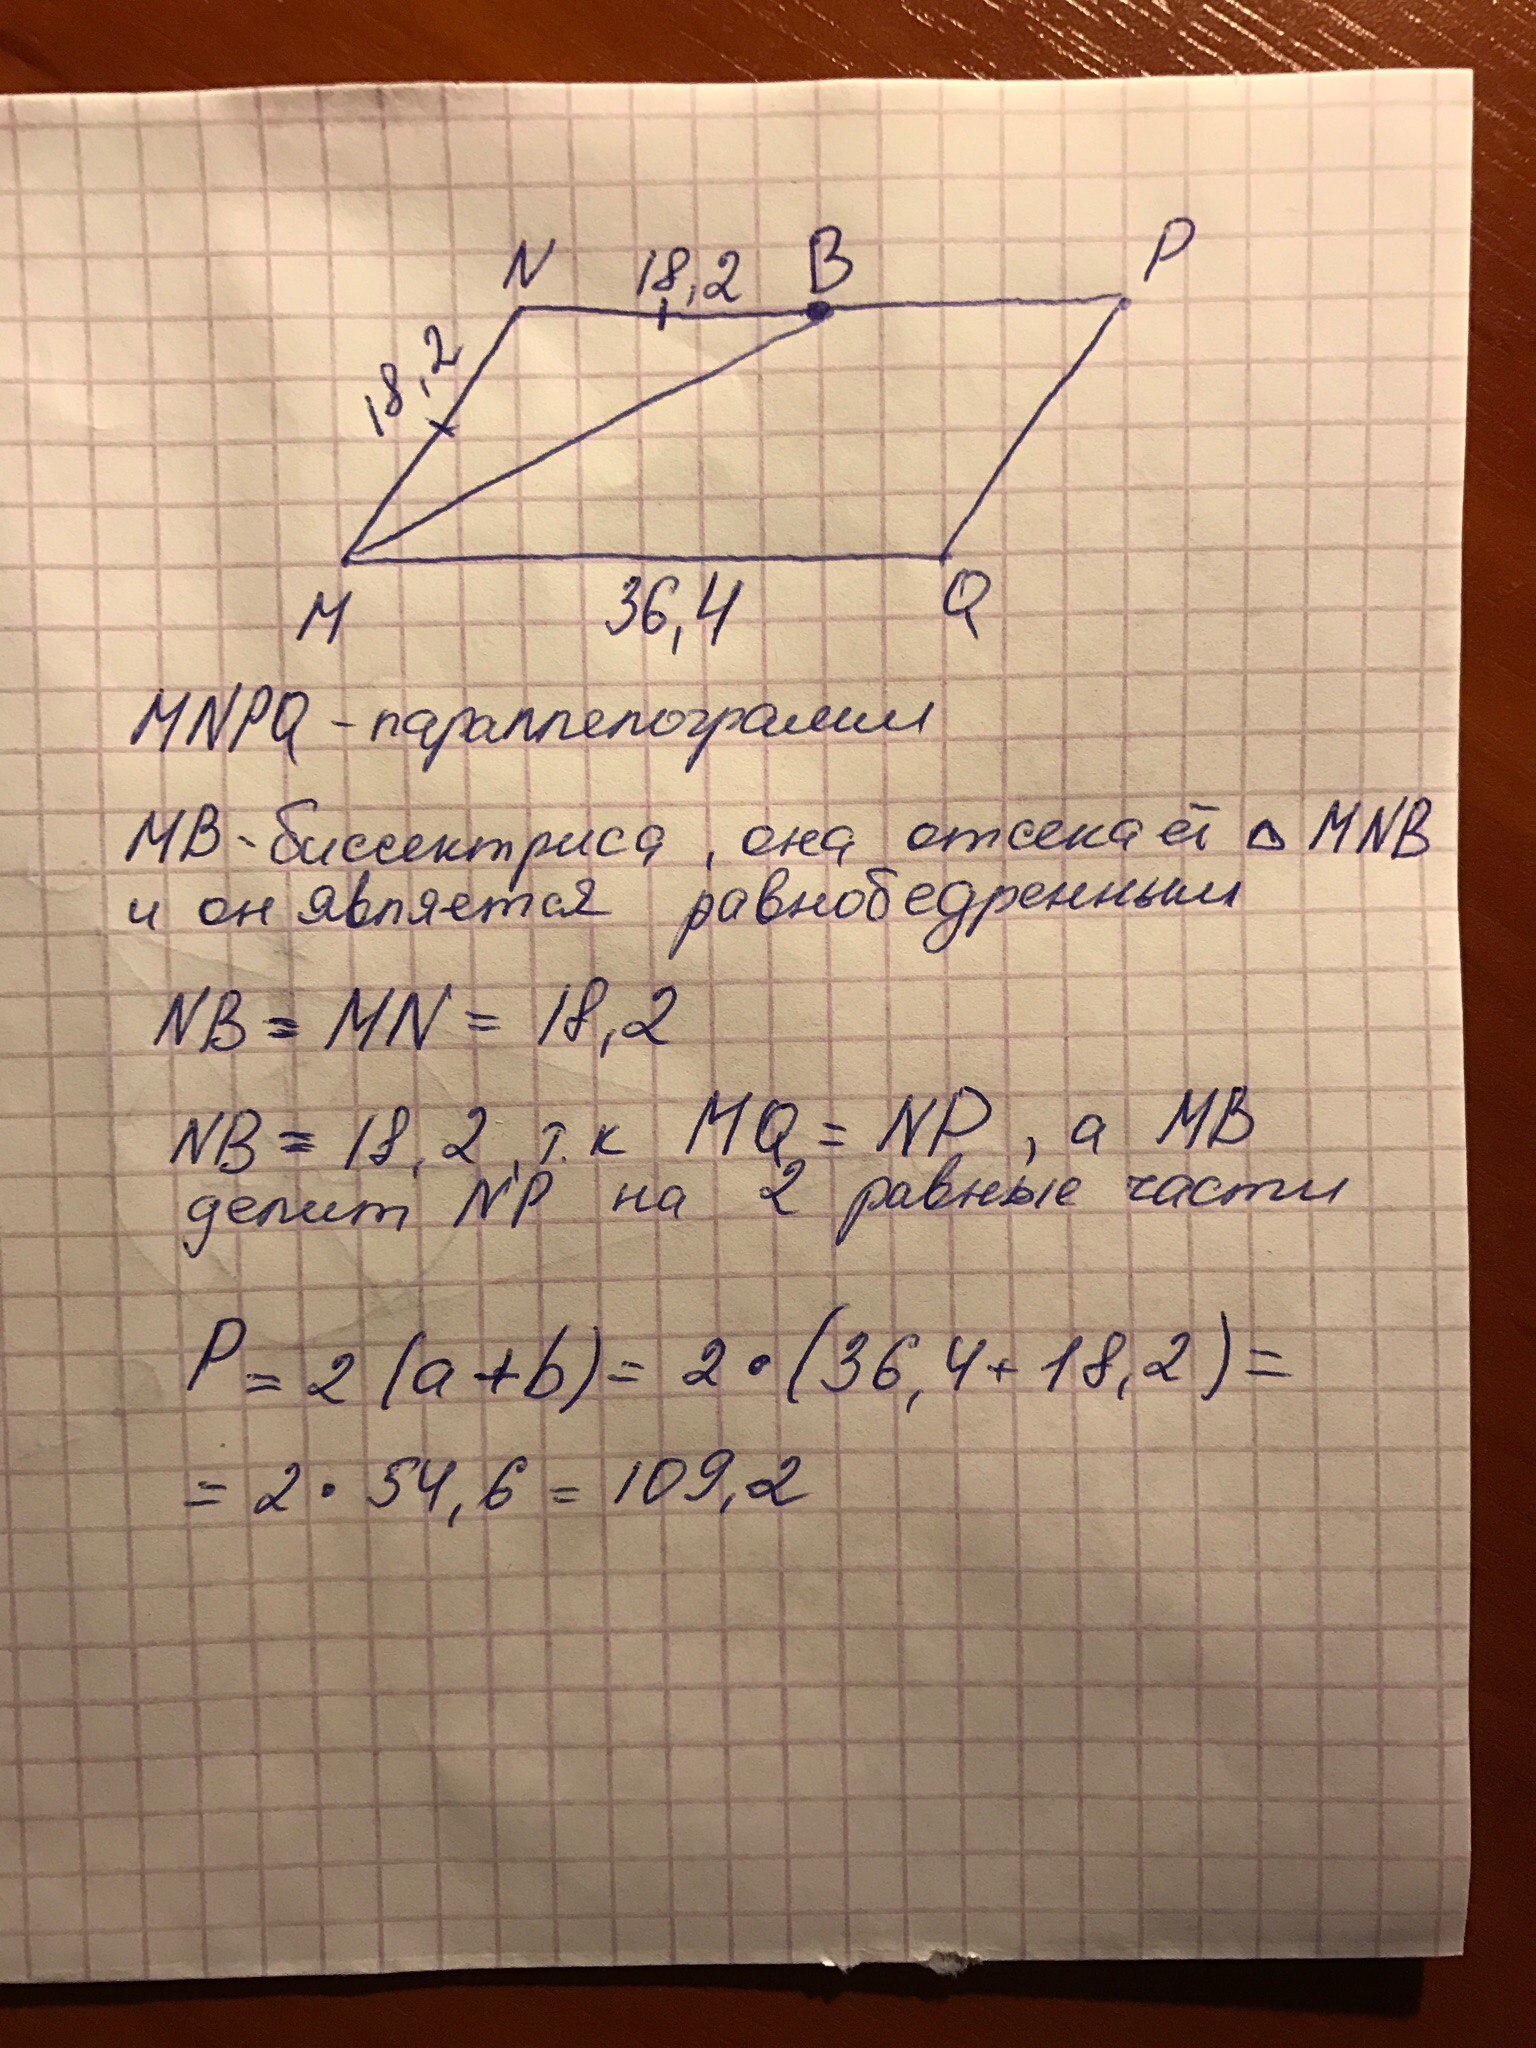 N 18,2 B P
18,2
M 36,4 Q
MNPQ - параллелограмм
MB - биссектриса, она отсекает △ MNB
и он является равнобедренным
NB = MN = 18,2
NB = 18,2, т.к MQ = NP, а MB
делит NP на 2 равные части
P = 2 (a + b) = 2 • (36,4 + 18,2) =
= 2 • 54,6 = 109,2